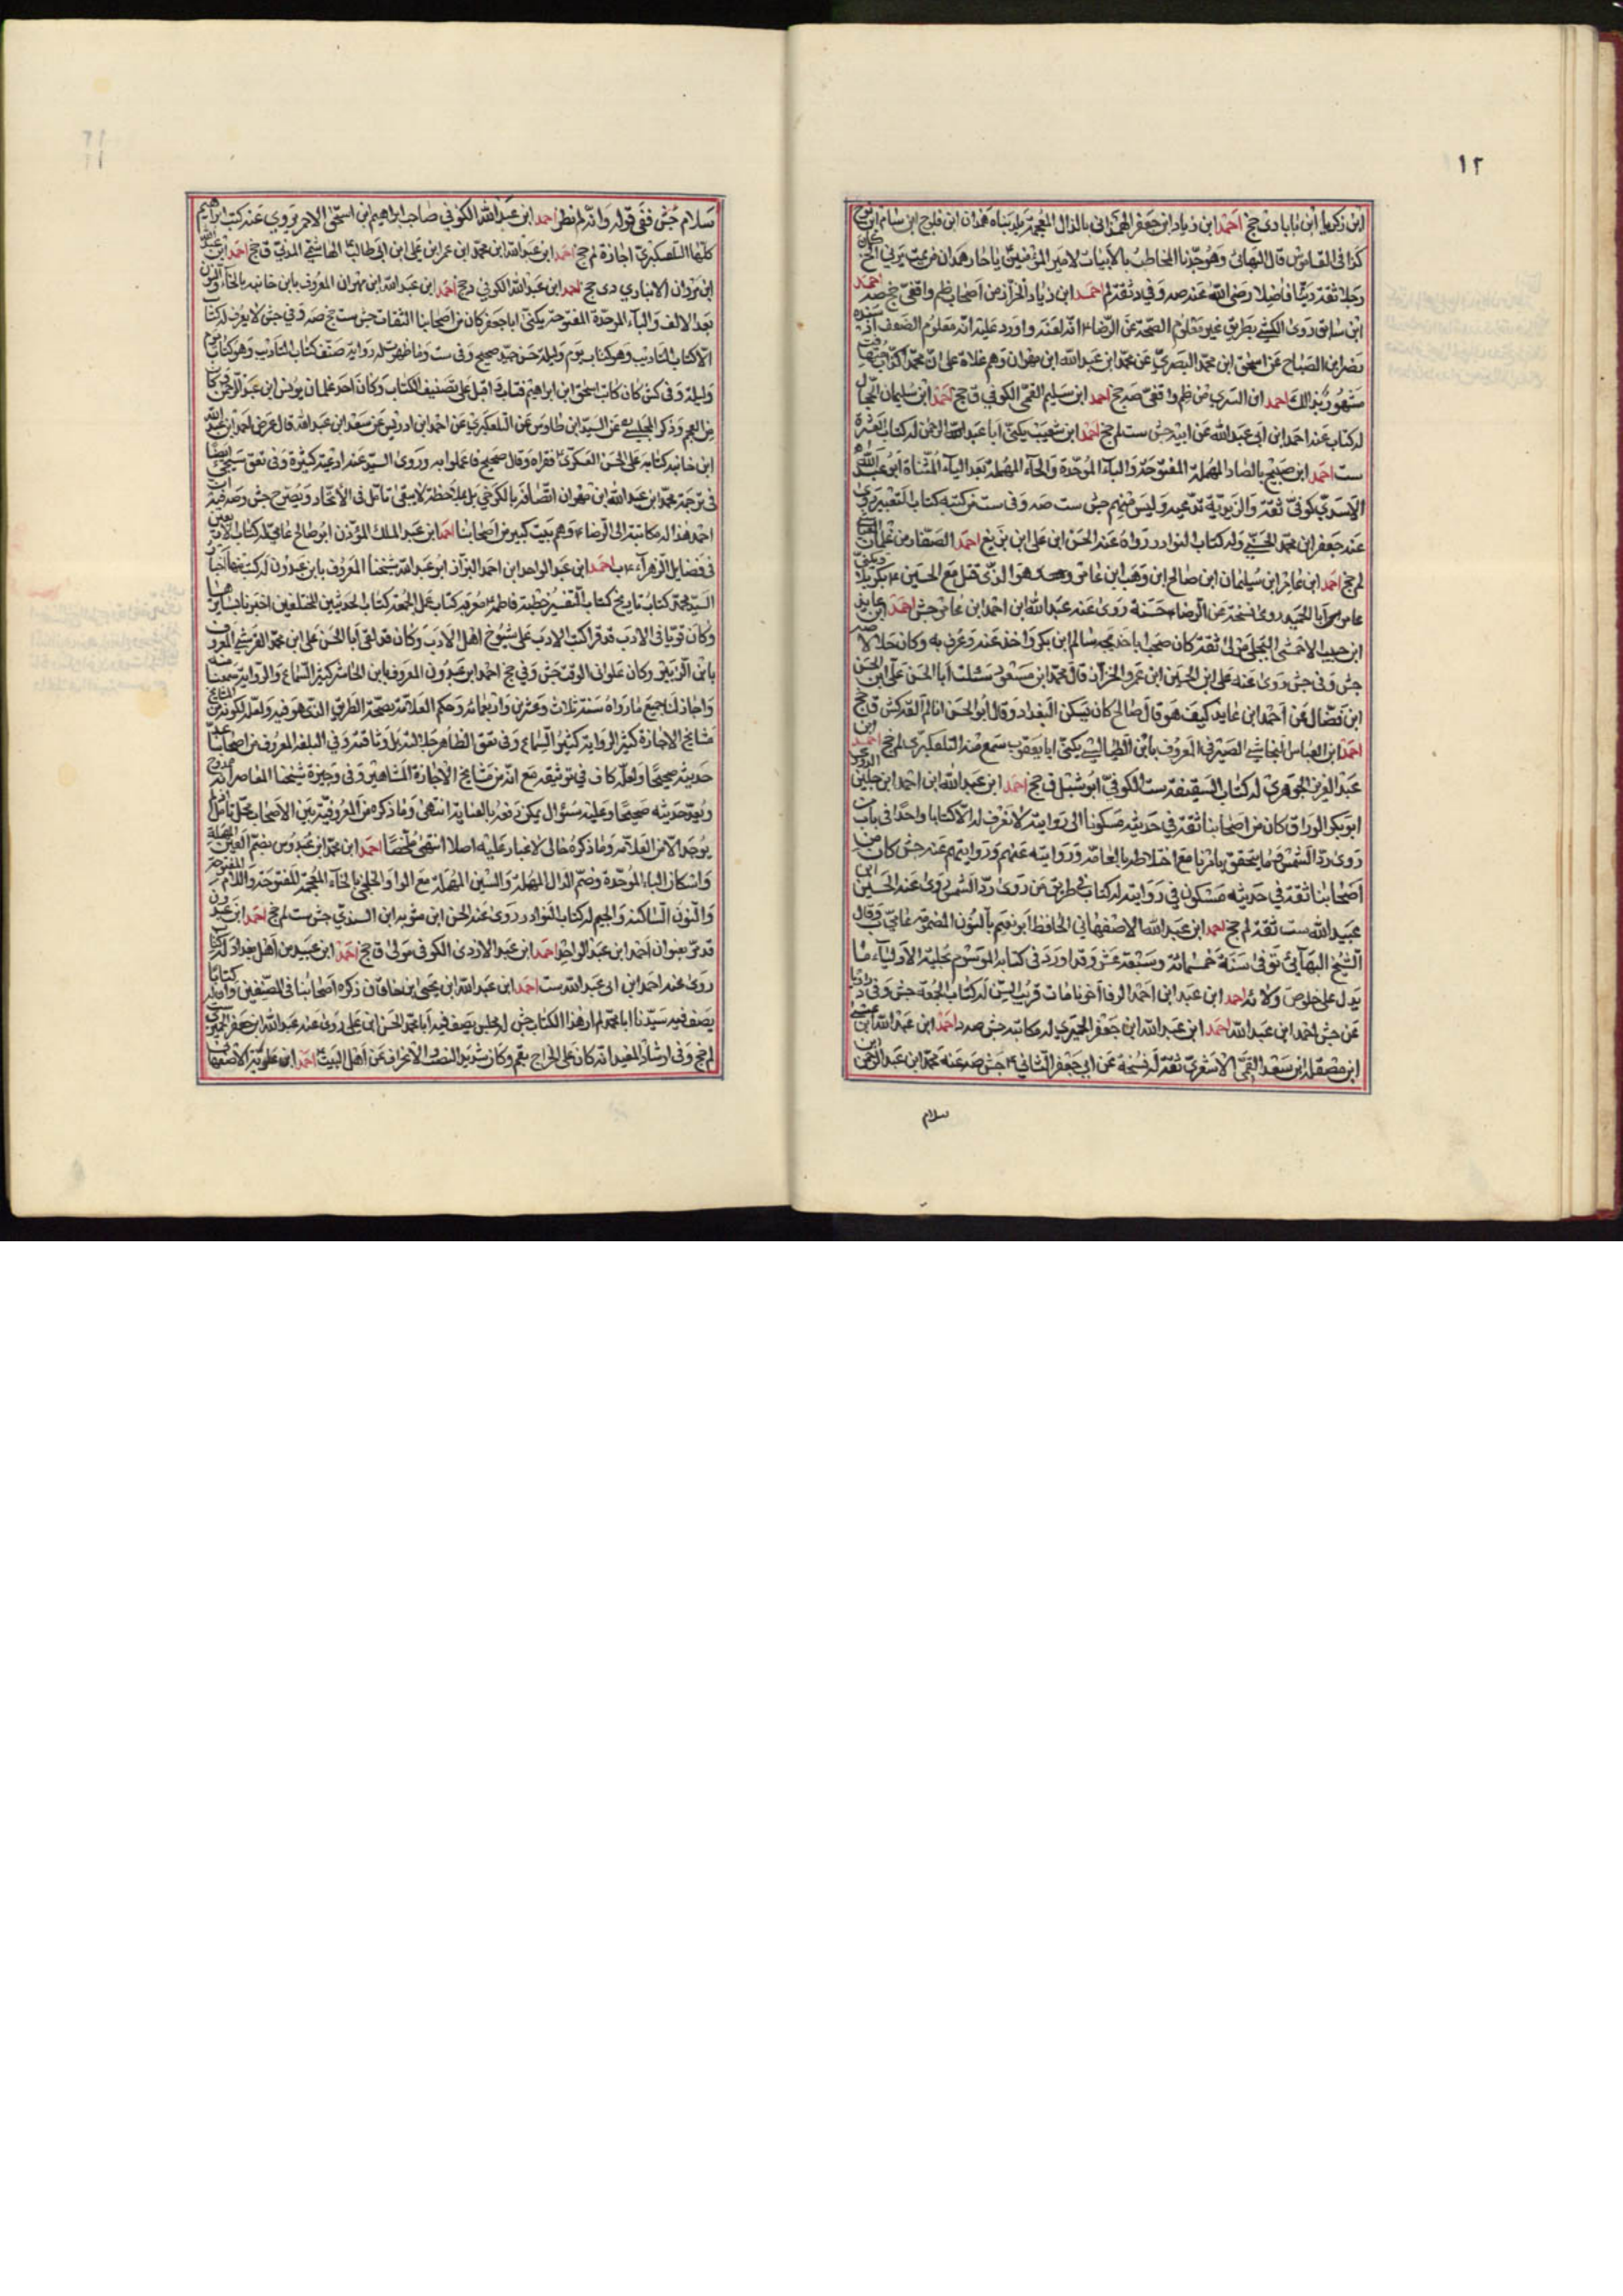 ١٢
ابن زكريا ابن بابا دى جخ احمد ابن زياد ابن جعفر الهمذانى بالذال المعجمة بلد بناه همذان ابن فلوج ابن سام ابن نوح
كذا فى القاموس قال البهائى وهو جدنا المخاطب بالابيات لامير المؤمنين يا حار همدان من يمت يرنى الخ كان
رجلا ثقة دينا فاضلا رضى الله عنه صه وفيه ثقة لم احمد ابن زياد الخزاز من اصحاب ظم واقفى جخ صه احمد
ابن سابق روى الكشى بطريق غير معلوم الصحة عن الرضا انه لعنه واورد عليه انه معلوم الضعف اذ
نصر ابن الصباح عن اسحق ابن محمد البصرى عن محمد ابن عبد الله ابن مهران وهم غلاة على ان محمد
مشهور بذلك احمد ابن السرى من ظم واقفى صه جخ احمد ابن سليم القمى الكوفى ق جخ احمد ابن سليمان
له كتاب عنه احمد ابن ابى عبد الله عن ابيه جش ست لم جخ احمد ابن شعيب يكنى ابا عبد الرحمن له كتاب
ست احمد ابن صبيح بالصاد المهملة المفتوحة والباء الموحدة والحاء المهملة بعد الياء المثناة ابو عبد الله
الاسدى كوفى ثقة والزيدية تدعيه وليس منهم جش ست صه وفى ست من كتبه كتاب التفسير يروى
عنه جعفر ابن محمد الحسنى وله كتاب النوادر رواه عنه الحسن ابن على ابن بزيع احمد الصفار من غلمان
لم جخ احمد ابن عامر ابن سليمان ابن صالح ابن وهب ابن عامر وهو الذى قتل مع الحسين بكربلا
روى نسخة عن الرضا حسنة روى عنه عبد الله ابن احمد ابن عامر جش احمد ابن عايذ
ابن حبيب الاحمسى البجلى مولى ثقة كان صحب ابا خديجه سالم ابن بكر واخذ عنه وعرف به وكان حلالا
جش وفى جش روى عنه على ابن الحسين ابن عمرو الخزاز قال محمد ابن مسعود سئلت ابا الحسن على ابن الحسن
ابن فضال عن احمد ابن عايذ كيف هو قال صالح كان يسكن البغداد وقال ابو الحسن انا لم القه كش ق جخ
احمد ابن العباس النجاشى الصيرفى المعروف بابن الطيالسى يكنى ابا يعقوب سمع منه التلعكبرى لم جخ احمد ابن
عبد العزيز الجوهرى له كتاب السقيفة ست الكوفى ابو شبل ق جخ احمد ابن عبد الله ابن احمد ابن جلين الدورى
ابو بكر الوراق كان من اصحابنا ثقة فى حديثه مسكونا الى روايته لا نعرف له الا كتابا واحدا فى
روى رد الشمس وما يتحقق بامرنا مع اختلاطه بالعامة وروايته عنهم وروايتهم عنه جش كان من
اصحابنا ثقة فى حديثه مسكون فى روايته له كتاب فى طريق من روى رد الشمس روى عنه الحسين ابن
عبيد الله ست ثقة لم جخ احمد ابن عبد الله الاصفهانى الحافظ ابو نعيم بالنون المضمومة عامى ب وقال
الشيخ البهائى توفى سنة خمسمائة وسبعة عشر وقد اورد فى كتابه الموسوم بحلية الاولياء ما
يدل على خلوص ولائه احمد ابن عبد ابن احمد الرفا اخونا مات قريب السن له كتاب الجمعة جش وفى
عن جش احمد ابن عبد الله احمد ابن عبد الله ابن جعفر الحميرى له مكاتبة جش صه د احمد ابن عبد الله ابن عيسى
ابن مصقلة ابن سعد القمى الاشعرى ثقة له نسخة عن ابى جعفر الثانى جش صه عنه محمد ابن عبد الرحمن ابن
سلام
سلام جش ففى قوله وانه لم نظر احمد ابن عبد الله الكوفى صاحب ابراهيم ابن اسحق الاحمر يروى عنه كتب ابراهيم
كلها التلعكبرى اجازة لم جخ احمد ابن عبد الله ابن محمد ابن عمر ابن على ابن ابى طالب الهاشمى المدنى ق جخ احمد ابن عبد الله
ابن مروان الانبارى دى جخ احمد ابن عبد الله الكوفى د جخ احمد ابن عبد الله ابن مهران المعروف بابن خانبه بالخاء والنون
بعد الالف والباء الموحدة المفتوحة يكنى ابا جعفر كان من اصحابنا الثقات جش ست جخ صه وفى جش لا يعرف له كتاب
الا كتاب التاديب وهو كتاب يوم وليلة حسن جيد صحيح وفى ست وما ظهر له رواية صنف كتاب التاديب وهو كتاب يوم
وليلة وفى كش كان كاتب اسحق ابن ابراهيم فتاب واقبل على تصنيف الكتاب وكان احد غلمان يونس ابن عبد الرحمن كان
من العجم وذكر المجلسى عن السيد ابن طاوس عن التلعكبرى عن احمد ابن ادريس عن سعد ابن عبد الله قال عرض احمد ابن عبد الله
ابن خانبه كتابه على الحسن العسكرى فقراه وقال صحيح فاعملوا به وروى السيد عنه ادعية كثيرة وفى تعق سيجئ ايضا
فى ترجمة محمد ابن عبد الله ابن مهران اتصافه بالكرخى بل بملاحظته لا يبقى تامل فى الاتحاد ويصرح جش وصه فيه
احمد هذا له مكاتبة الى الرضا وهم بيت كبير من اصحابنا احمد ابن عبد الملك المؤذن ابو صالح عامى له كتاب الاربعين
فى فضايل الزهراء ب احمد ابن عبد الواحد ابن احمد البزاز ابو عبد الله شيخنا المعروف بابن عبدون له كتب منها اخبار
السيد محمد كتاب تاريخ كتاب التفسير خطبة فاطمة معربة كتاب عمل الجمعة كتاب الحديثين المختلفين اخبرنا بسايرها
وكان قويا فى الادب قد قرا كتب الادب على شيوخ اهل الادب وكان قد لقى ابا الحسن على ابن محمد القرشى المعروف
بابن الزبير وكان علوا فى الوقت جش وفى جخ احمد ابن عبدون المعروف بابن الحاشر كثير السماع والرواية سمعنا منه
واجاز لنا جميع ما رواه سنة ثلاث وعشرين واربعمائة وحكم العلامة بصحة الطريق التى هو فيه ولعله لكونه من
مشايخ الاجازة كثير الرواية كثير السماع وفى تعق الظاهر جلالته بل وثاقته وفى البلغة المعروف من اصحابنا
حديثه صحيحا ولعله كاف فى توثيقه مع انه من مشايخ الاجازة المشاهير وفى وجيزة شيخنا المعاصر انه ممدوح
ويعد حديثه صحيحا وعليه سئوال يمكن دفعه بالعناية انتهى وما ذكره من المعروفية بين الاصحاب محل تامل
يوجد الا من العلامة وما ذكره خالى لا غبار عليه اصلا انتهى ملخصا احمد ابن محمد ابن عبدوس بضم العين المهملة
واسكان الباء الموحدة وضم الدال المهملة والسين المهملة مع الواو الخلنجى بالخاء المعجمة المفتوحة واللام المفتوحة
والنون الساكنة والجيم له كتاب النوادر روى عنه الحسن ابن متويه ابن السندى جش ست لم جخ احمد ابن عبدون
قد مر بعنوان احمد ابن عبد الواحد احمد ابن عبد الازدى الكوفى مولى ق جخ احمد ابن عبيد من اهل بغداد له كتاب
روى عنه احمد ابن ابى عبد الله ست احمد ابن عبد الله ابن يحيى ابن خاقان ذكره اصحابنا فى المصنفين وان له كتابا
يصف فيه سيدنا ابا محمد لم ار هذا الكتاب جش له مجلس يصف فيه ابا محمد الحسن ابن على روى عنه عبد الله ابن جعفر الحميرى ست
لم جخ وفى ارشاد المفيد انه كان على الخراج بقم وكان شديد النصب والانحراف عن اهل البيت احمد ابن علويه الاصفهانى